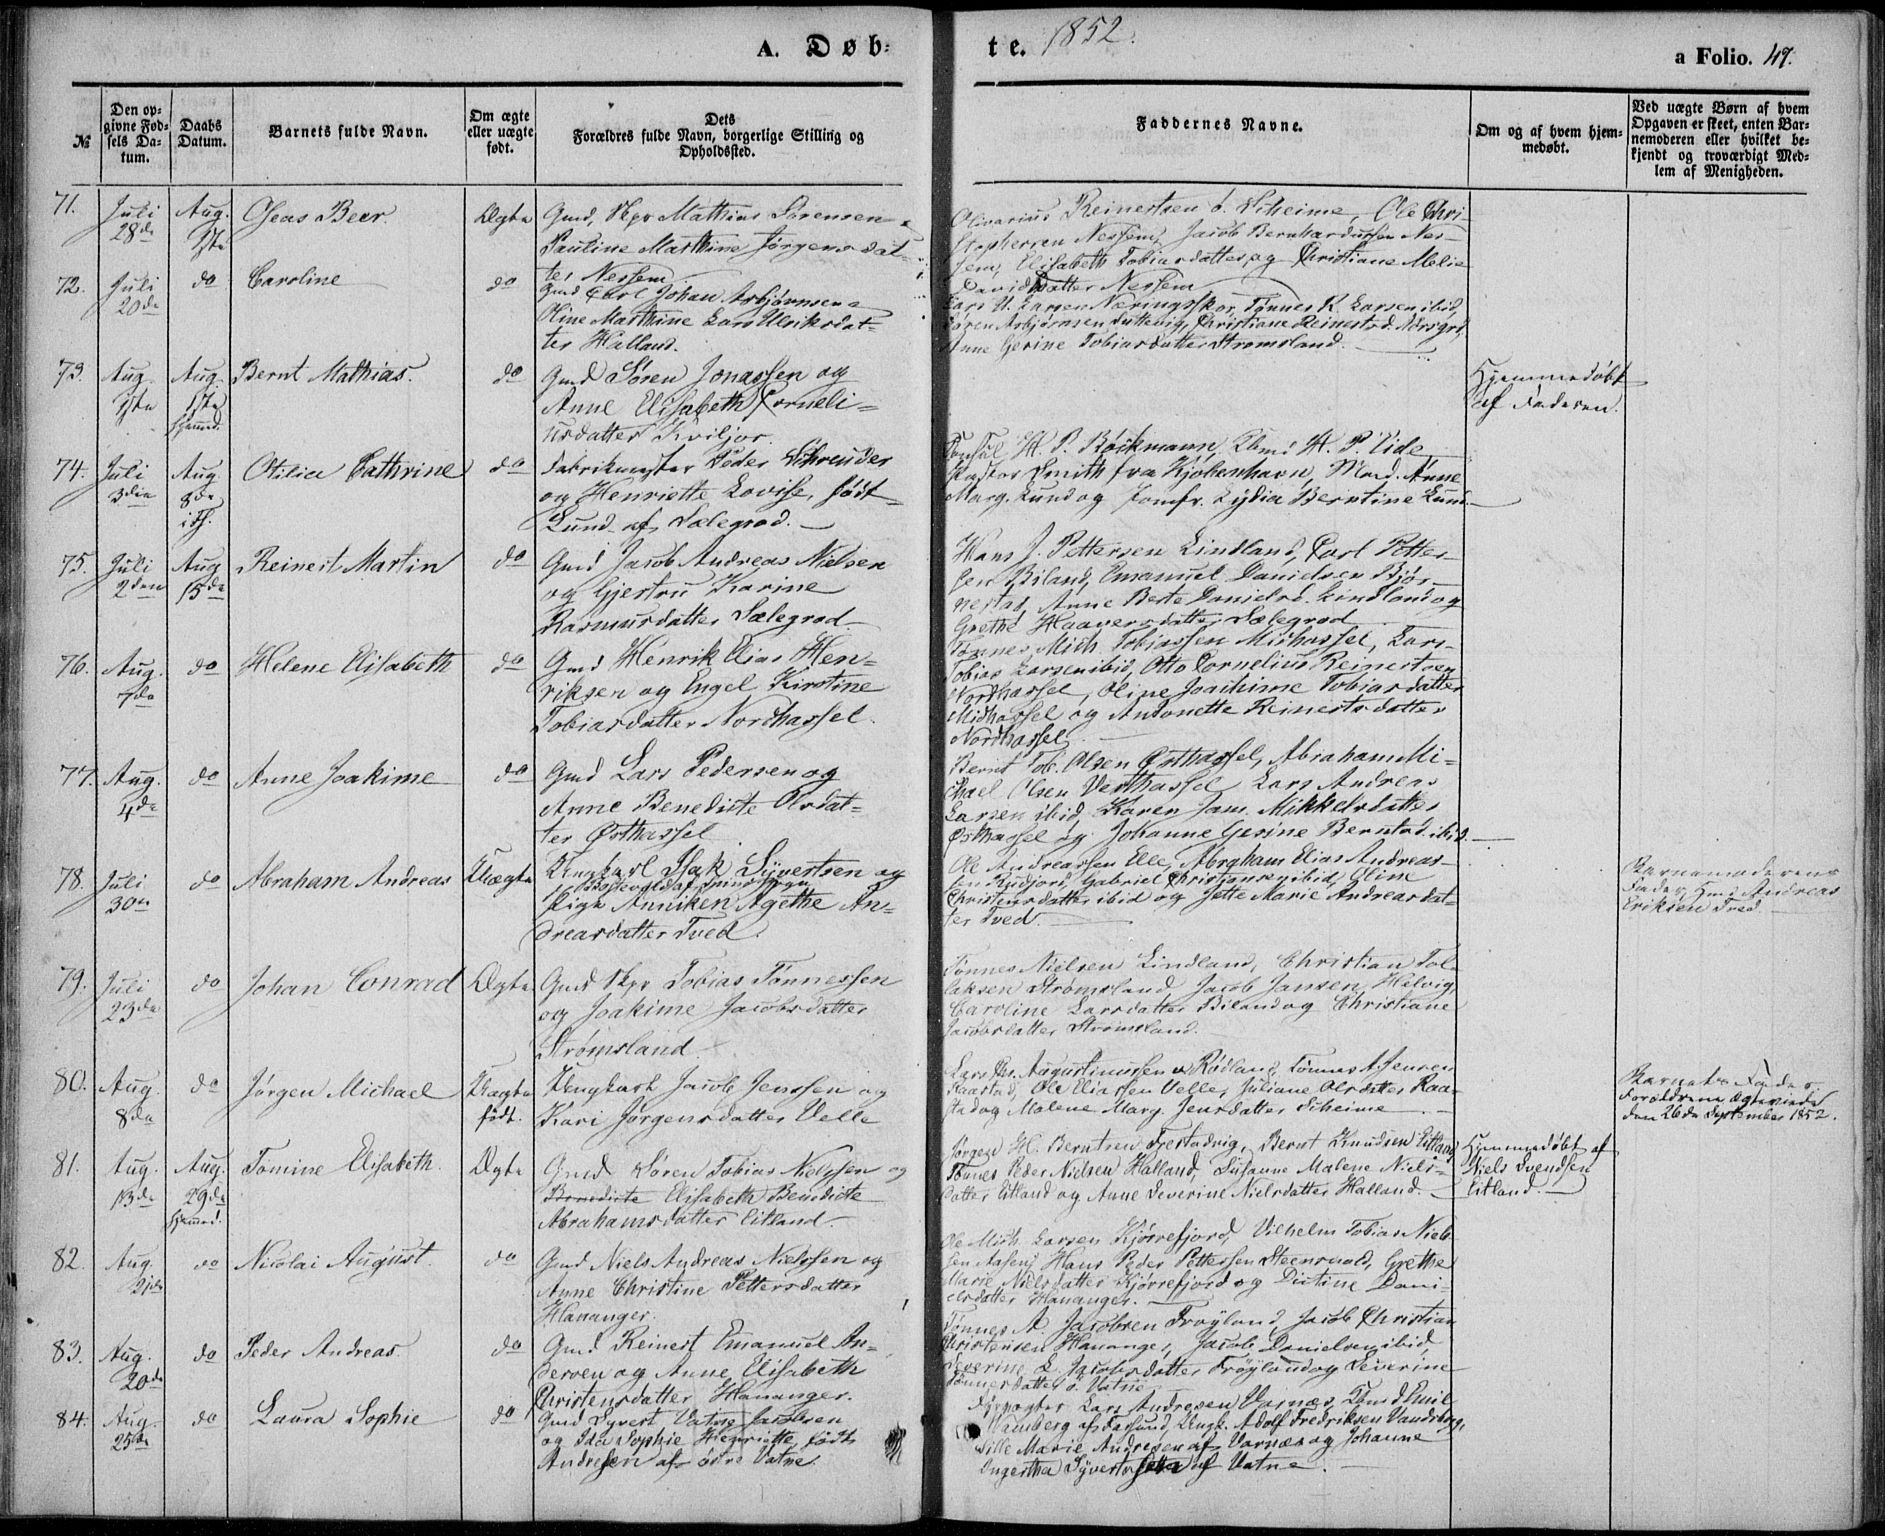 A. Døb-
te. 1852.
a Folio. 47.
№
Den op-
givne Fød-
sels Da-
tum.
Daabs
Datum.
Barnets fulde Navn.
Om ægte
eller uægte
født.
Dets
Forældres fulde Navn, borgerlige Stilling og
Opholdssted.
Faddernes Navne.
Om og af hvem hjem-
medøbt.
Ved uægte Børn af hvem
Opgaven er skeet, enten Bar-
nemoderen eller hvilket be-
kjendt og troværdigt Med-
lem af Menigheden.
71.
Juli
28de
Aug.
1ste
Oseas Beer
Ægte
Gmd, Skpr Mathias Sørensen
Pauline Marthine Jørgensdat-
ter Nessem
Olivarius Reinertsen ø. Skeime, Ole Chri-
stophersen Nessem, Jacob Bernhardussen Nes-
sem, Elisabeth Tobiasdatter og Christiane Melie
Davidsdatter Nessem
72.
Juli
20de
do
Caroline
do
Gmd Carl Johan Asbjørnsen
Oline Marthine Lars Ulriksdat-
ter Halland.
Lars U. Larsen Næringsskor, Tønnes K. Larsen ibid,
Søren Asbjørnsen, Christiane Reinertsd.
Anne Gerine Tobiasdatter Strømsland.
73.
Aug.
1ste
Aug.
1ste
hjemmed.
Bernt Mathias.
do
Gmd Søren Jonassen og
Anne Elisabeth Corneli-
usdatter Kviljor.
Hjemmedøbt
af Faderen.
74.
Juli
3die
Aug
8de
i Fs.
Otilia Cathrine
do
Fabrikmester Peder Schreuder
og Henriette Lovise, født
Lund af Sælegrod.
Consul H. P. Bøckmann, H. P. Eide
Smith fra Kjøbenhavn, Mad. Anne
Marg. Lund og Jomfr. Lydia Berntine Lund.
75.
Juli
2den
Aug
15de
Reinert Martin
do
Gmd Jacob Andreas Nielsen
og Gjertru Karine
Rasmusdatter Sælegrod
Hans J. Pettersen Lindland, Carl Petter-
sen Biland, Emanuel Danielsen Bjør-
nestad, Anne Berte Danielsd. Lindland og
Grethe Haaversdatter Sælegrod
76.
Aug.
7de
do
Helene Elisabeth
do
Gmd Henrik Elias Hen-
riksen og Engel Kirstine
Tobiasdatter Nordhassel.
Tønnes Mich Tobiassen Midhassel, Lars
Tobias Larsen ibid, Otto Cornelius Reinertsen
Nordhassel, Oline Joachime Tobiasdatter
Midhassel og Antonette Reinertsdatter
Nordhassel
77.
Aug.
4de
do
Anne Joakime
do
Gmd Lars Pedersen og
Anne Benedicte Olsdat-
ter Østhassel
Bernt Tob. Olsen Østhassel, Abraham Mi-
chael Olsen Vesthassel Lars Andreas
Larsen ibid, Karen Jam. Mikkelsdatter
Østhassel og Johanne Gesine Berntsd. ibid.
78.
Juli
30te
do
Abraham Andreas
Uægte
Ungkarl Isak Syvertsen og
Pige Anniken Agethe An-
dreasdatter Tved.
Ole Andreassen Elle, Abraham Elias Andreas-
sen Rudjord, Gabriel Christiansen ibid, Oline
Christensdatter ibid og Jette Marie Andreasdat-
ter Tved.
Barnemoderens
Fader, Gmd Andreas
Eriksen Tved
79.
Juli
23de
do
Johan Conrad
Ægte
Gmd Skpr Tobias Tønnessen
og Joakime Jacobsdatter
Strømsland.
Tønnes Nielsen Lindland, Christian Tol-
laksen Strømsland Jacob Jansen Helvig,
Caroline Larsdatter Biland og Christiane
Jacobsdatter Strømsland.
80.
Aug.
8de
do
Jørgen Michael
Uægte
født.
Ungkarl Jacob Jenssen og
Kari Jørgensdatter Velle
Lars Chr. Augustinussen Rødland, Tønnes A. Jensen
Raastad, Ole Eliassen Velle, Juliane Olsdatter Raa-
stad og Malene Marg. Jensdatter Skeime
Barnets Fader.
Forældrene ægteviede
den 26de September 1852.
81.
Aug.
13de
Aug.
29de
hjemmed.
Tomine Elisabeth.
Ægte
Gmd Søren Tobias Nielssen og
Benedicte Elisabeth Benedicte
Abrahamsdatter Eitland.
Jørgen H. Berntsen Tjestadvig, Bernt Knudsen Eitland
Tønnes Peder Nielsen Halland, Susanne Malene Niels-
datter Eitland og Anne Severine Nielsdatter Halland.
Hjemmedøbt af
Niels Svendsen
Eitland.
82.
Aug.
2den
do
Nicolai August.
do
Gmd Niels Andreas Nielssen og
Anne Christine Pettersdatter
Hananger.
Ole Mich. Larsen Kjørrefjord, Vilhelm Tobias Niels-
sen Aasen, Hans Peder Pettersen Steensvold, Grethe
Marie Nielsdatter Kjørrefjord og Dortine Dani-
elsdatter Hananger.
83.
Aug.
20de
do
Peder Andreas.
do
Gmd Reinert Emanuel An-
dersen og Anne Elisabeth
Christensdatter Hananger.
Tønnes A. Jacobsen Frøyland, Jacob Christian
Christensen Hananger, Jacob Danielsen ibid,
Severine L. Jacobsdatter Frøyland og Severine
Tønnesdatter ø. Vatne
84.
Aug.
25de
do
Laura Sophie
do
Gmd Syvert Vatne Jacobsen
og Ida Sophie Henriette født
Andresen af østre Vatne.
Lars Andresen Varnæs, Emil
Wandberg af Farsund, Ungk. Adolf Fredriksen Vansborg,
Sille Marie Andresen af Varnæs og Johanne
Ingertha Syverts af Vatne.